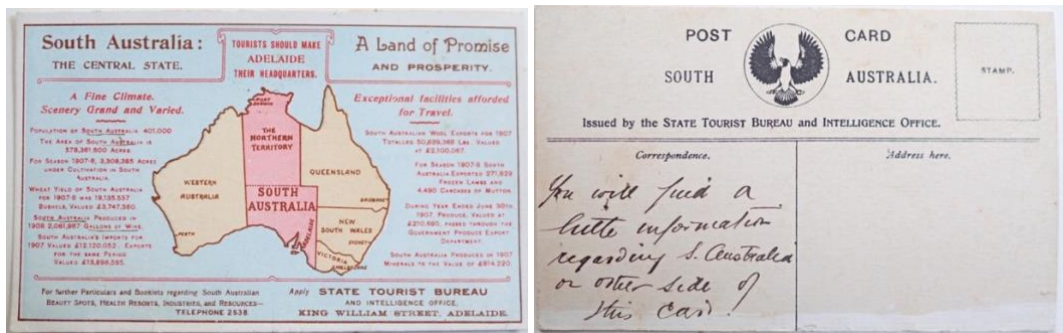 South Australia:
THE CENTRAL STATE.
TOURISTS SHOULD MAKE
ADELAIDE
THEIR HEADQUARTERS.
A Land of Promise
AND PROSPERITY.
A Fine Climate.
Scenery Grand and Varied.
POPULATION OF SOUTH AUSTRALIA 401,000
THE AREA OF SOUTH AUSTRALIA IS
578,361,600 ACRES
FOR SEASON 1907-8, 3,308,385 ACRES
UNDER CULTIVATION IN SOUTH
AUSTRALIA.
WHEAT YIELD OF SOUTH AUSTRALIA
FOR 1907-8 WAS 19,135,557
BUSHELS, VALUED £3,747,380.
SOUTH AUSTRALIA PRODUCED IN
1908 2,061,987 GALLONS OF WINE.
SOUTH AUSTRALIA'S IMPORTS FOR
1907 VALUED £12,120,052. EXPORTS
FOR THE SAME PERIOD
VALUED
PORT
DARWIN
THE
NORTHERN
TERRITORY
WESTERN
AUSTRALIA
PERTH
QUEENSLAND
BRISBANE
SOUTH
AUSTRALIA
ADELAIDE
NEW
SOUTH WALES
SYDNEY
VICTORIA
MELBOURNE
Exceptional facilities afforded
for Travel.
SOUTH AUSTRALIAN WOOL EXPORTS FOR 1907
TOTALLED LBS. VALUED
AT £2,100,067.
FOR SEASON 1907-8 SOUTH
AUSTRALIA EXPORTED 271,829
FROZEN LAMBS AND
4,490 CARCASES OF MUTTON.
DURING YEAR ENDED JUNE 30TH,
1907, PRODUCE, VALUED AT
£210,690, PASSED THROUGH THE
GOVERNMENT PRODUCE EXPORT
DEPARTMENT.
SOUTH AUSTRALIA PRODUCED IN 1907
MINERALS TO THE VALUE OF £914,220.
For further Particulars and Booklets regarding South Australian
BEAUTY SPOTS, HEALTH RESORTS, INDUSTRIES, AND RESOURCES—
TELEPHONE 2538
Apply STATE TOURIST BUREAU
AND INTELLIGENCE OFFICE,
KING WILLIAM STREET, ADELAIDE.
POST CARD
SOUTH AUSTRALIA.
STAMP.
Issued by the STATE TOURIST BUREAU and INTELLIGENCE OFFICE.
Correspondence.
Address here.
You will find a
little information
regarding S. Australia
on other side of
this card!